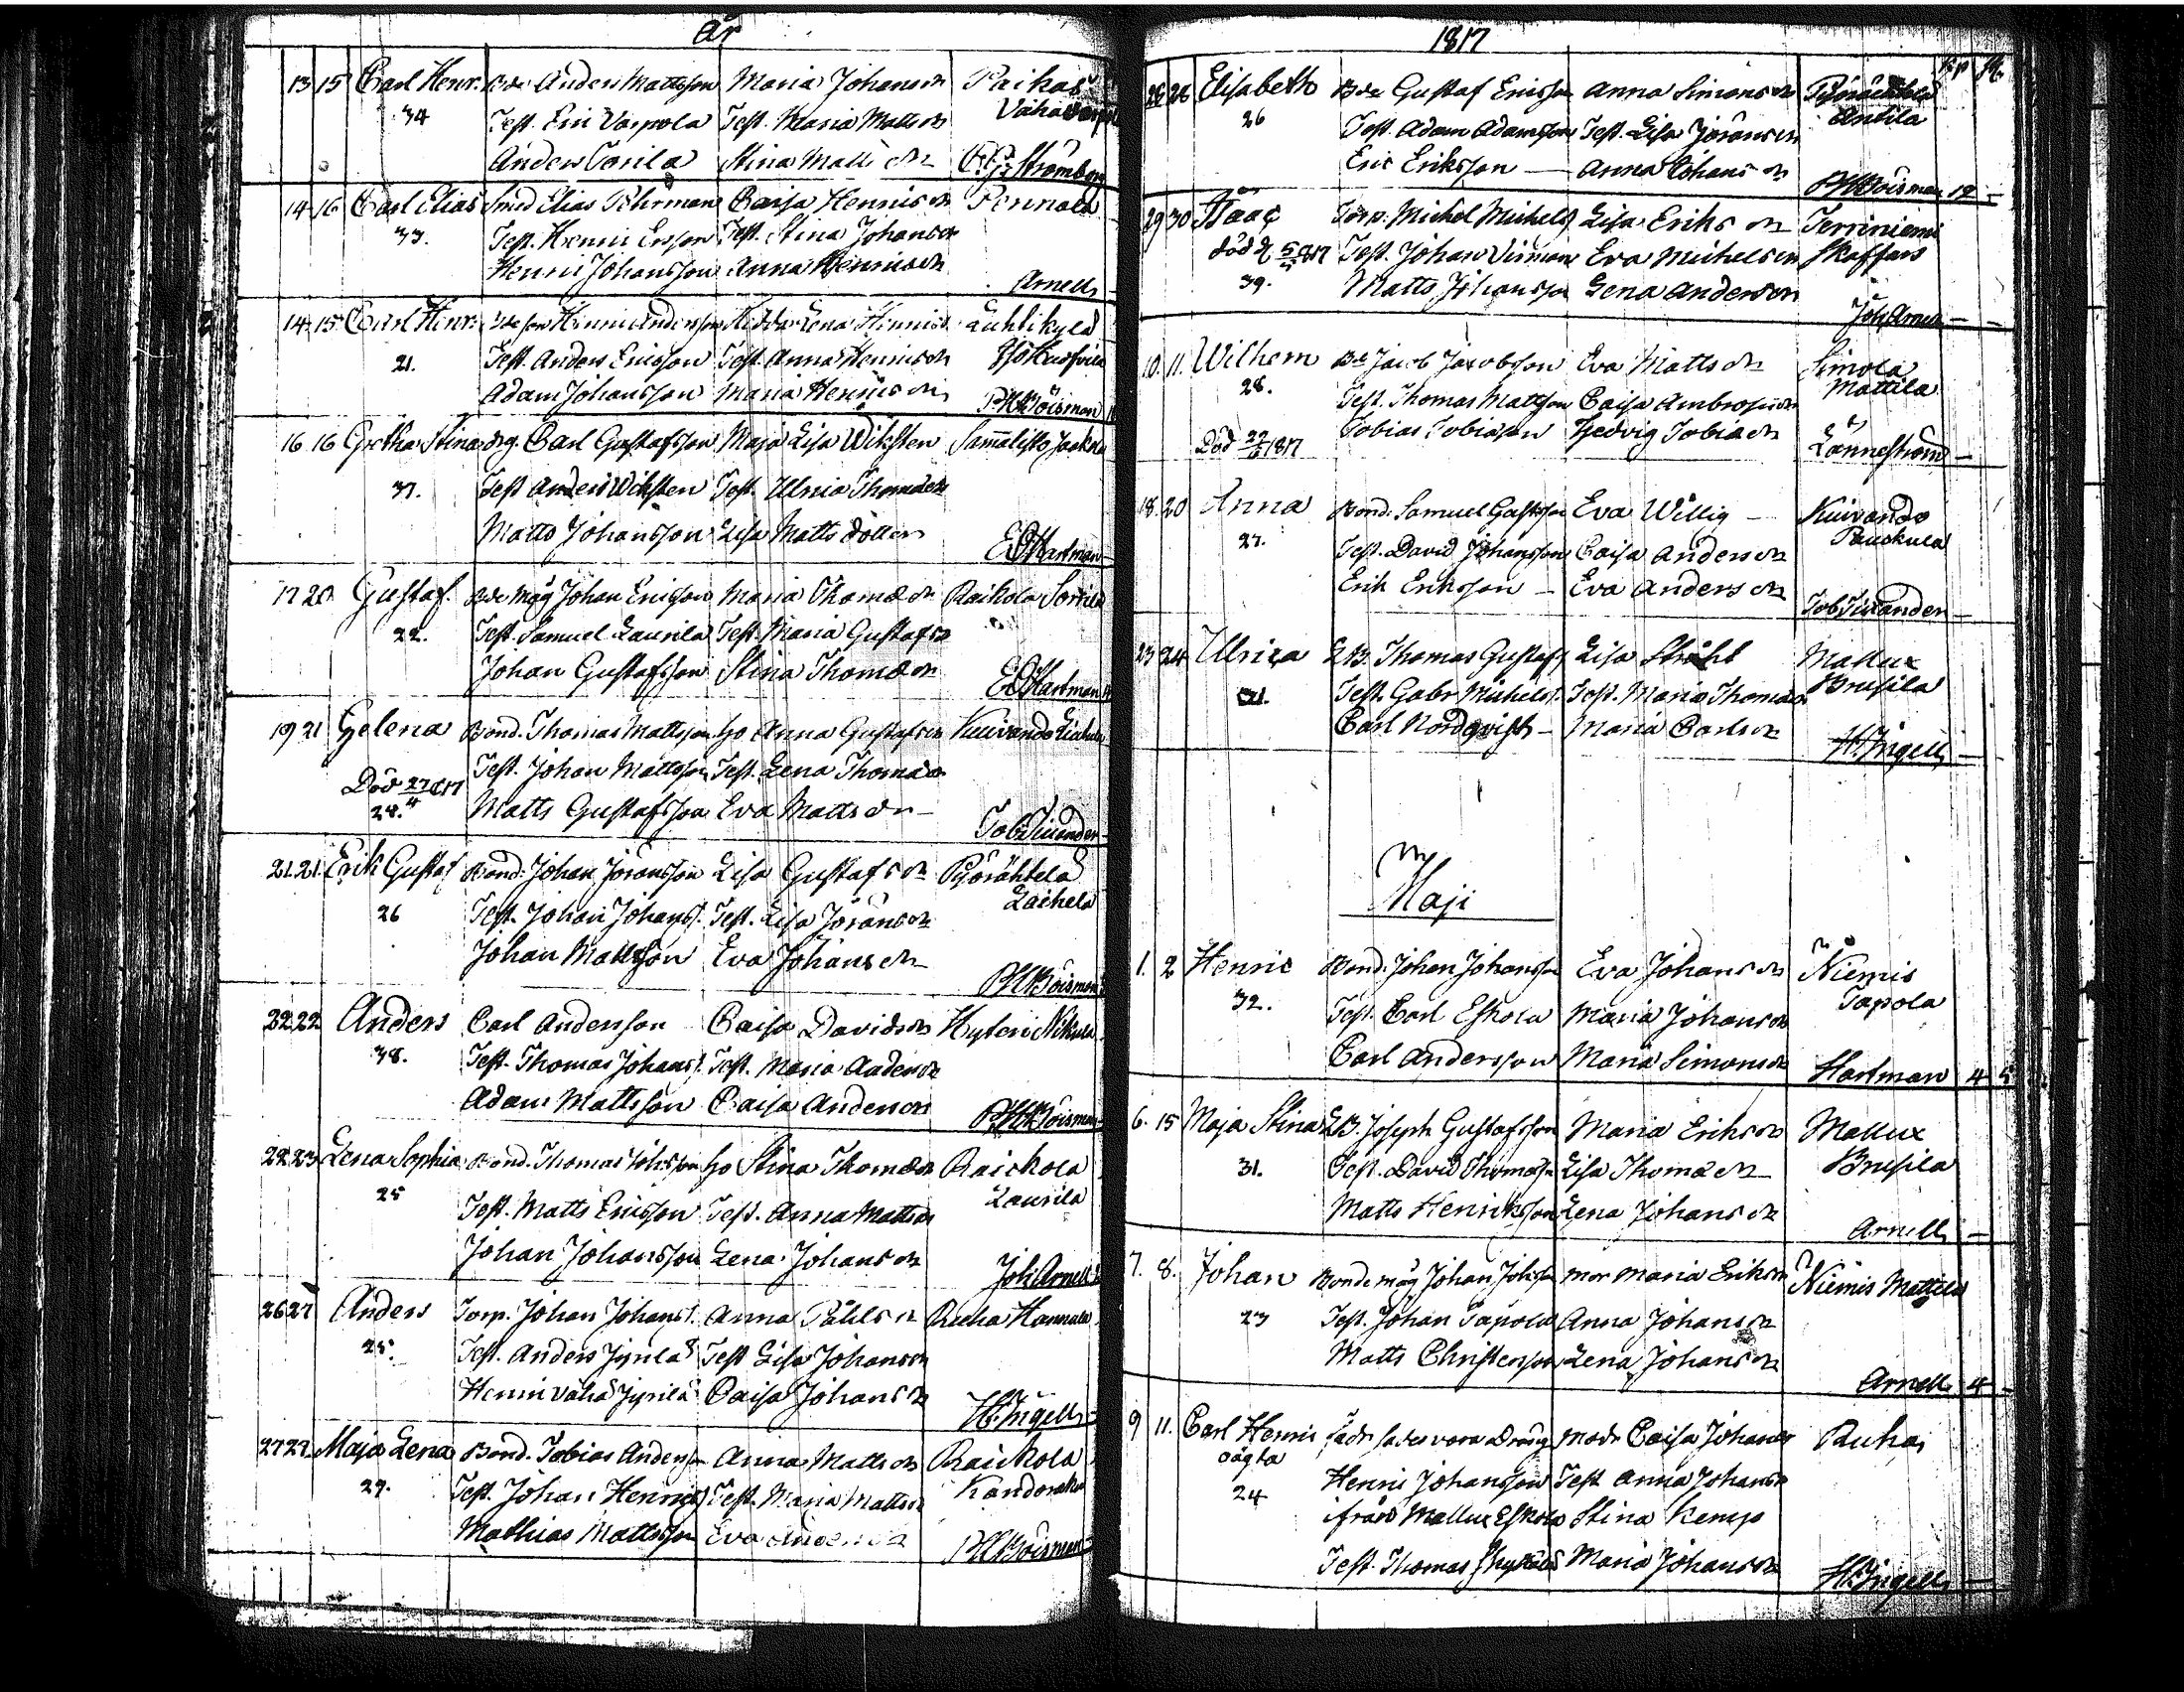 År
13. 15 Carl Henr. Bde Anders Mattsson Maria Johans dr Paikas
34 Test. Eric Varpola Test. Maria Matts dr Vaha Varpola
Anders Torila Stina Matts dr Strömberg
14 16 Carl Elias Smed Elias Pehrman Caisa Henrics dr Pennala
33. Test. Henric Ersson Test. Stina Johans dr
Henric Johansson Anna Henrics dr
Arnell
14. 15. Carl Henr. Henric Andersson Hedda Lena Henrics
21. Test. Anders Ericsson Test. Anna Henrics dr
Adam Johansson Maria Henrics dr
Böisman
16 16 Gretha Stina Carl Gustafsson Maja Lisa Wiksten Sammalisto Jaakola
37. Test Anders Wiksten Test. Ulrica Thomæ dr
Matts Johansson Lisa Matts dotter
E Hartman
17 20. Gustaf. Bde Måg Johan Ericsson Maria Thomæ dr Raikola Sorrila
22. Test. Samuel Laurila Test. Maria Gustafs dr
Johan Gustafsson Stina Thomæ dr
E Hartman
19 21 Helena Bond. Thomas Mattsson ho Anna Gustafs dr Kuivando
Test. Johan Mattsson Test. Lena Thomæ dr
Död 27/4 1817
28. Matts Gustafsson Eva Matts dr
Tob Tirander
21. 21. Erik Gustaf Bond. Johan Jöransson Lisa Gustafs dr Pyörähtelä
26 Test. Johan Johanss. Test. Lisa Jörans dr
Johan Mattsson Eva Johans dr
Böisman
22 22 Anders Carl Andersson Caisa Davids dr
38. Test. Thomas Johanss. Test. Maria Anders dr
Adam Mattsson Caisa Anders dr
Böisman
22 23 Lena Sophia Bond. Thomas Johsson ho Stina Thomæ dr Raickola
25 Test. Matts Ericsson Test. Anna Matts dr Laurila
Johan Johansson Lena Johans dr
Joh Arnell
26 27 Anders Torp. Johan Johanss. Anna Påhls dr Ruha Hannula
25. Test. Anders Jyrilä Test Lisa Johans dr
Henric Vähä Jyrilä Caisa Johans dr
H. Ingell
27 27. Maja Lena Bond. Tobias Andersson Anna Matts dr Raickola
27. Test. Johan Henricss Test. Maria Matts dr
Mathias Mattsson Eva Anders dr
Böisman
1817
26 28 Elisabeth Bde Gustaf Ericsson Anna Simons dr
26 Test. Adam Adamsson Test. Lisa Jörans dr Antila
Eric Eriksson Anna Johans dr
Böisman 12
29 30 Isaac Torp. Michel Michelss Lisa Eriks dr Terriniemi
död d. 5/5 1817 Test. Johan Virman Eva Michels dr Skaffars
39. Matts Johansson Lena Anders dr
Joh Arnell
10. 11. Wilhem Bde Jacob Jacobsson Eva Matts dr Simola
28. Test. Thomas Mattsson Caisa Ambrosii dr Mattila
Tobias Tobiasson Hedvig Tobiæ dr
Död 1817 Lännström
18. 20 Anna Bond. Samuel Gustafsson Eva Willig Kuivando
27. Test. David Johansson Caisa Anders dr
Erik Eriksson Eva Anders dr
Tob Tirander
23 24 Ulrica Thomas Gustafs Lisa Ståhl Mallux
21. Test. Gabr Michelss. Test. Maria Thomæ dr Brusila
Carl Nordqvist Maria Carls dr
H. Ingell
Maji
1. 2 Henric Bond. Johan Johansson Eva Johans dr Niemis
32. Test. Carl Eskola Maria Johans dr Tapola
Carl Andersson Maria Simons dr
Hartman 4
6. 15 Maja Stina Joseph Gustafsson Maria Eriks dr Mallux
31. Test. David Thomasson Lisa Thomæ dr Brusila
Matts Henriksson Lena Johans dr
Arnell
7. 8. Johan Bonde måg Johan Johsson mor Maria Eriks dr Niemis Mattila
23 Test. Johan Tapola Anna Johans dr
Matts Christersson Lena Johans dr
Arnell 4
9 11. Carl Henric fadr sades vara Dräng Modr Caisa Johans dr Ruha
oägta
24 Henric Johansson Test Anna Johans dr
ifrån Mallux Eskola Stina Kemp
Test. Thomas Maria Johans dr
H. Ingell